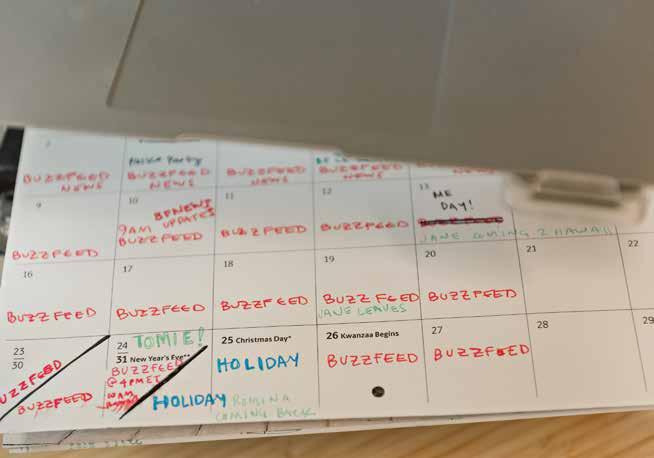 BUZZFEED
NEWS
Party
BUZZFEED
NEWS
BUZZFEED
NEWS
BUZZFEED
NEWS
BUZZFEED
NEWS
9
BUZZFEED
10
BFNEWS
UPDATES
9AM
BUZZFEED
11
BUZZFEED
12
BUZZFEED
13
ME
DAY!
JANE COMING 2 HAWAII
16
BUZZFEED
17
BUZZFEED
18
BUZZFEED
19
BUZZFEED
JANE LEAVES
20
BUZZFEED
21
22
23
30
BUZZFEED
BUZZFEED
24
TOMIE!
31 New Year's Eve**
BUZZFEED
@4PMET
10AM
HOLIDAY
25 Christmas Day*
HOLIDAY
ROMINA
COMING BACK
26 Kwanzaa Begins
BUZZFEED
27
BUZZFEED
28
29